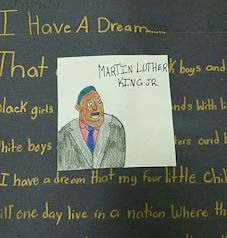 I Have A Dream......
That
MARTIN LUTHER
KING JR
K boys and
black girls
nds with li
White boys
ers and b
I have a dream that my four little Chil
ill one day live in a nation Where th